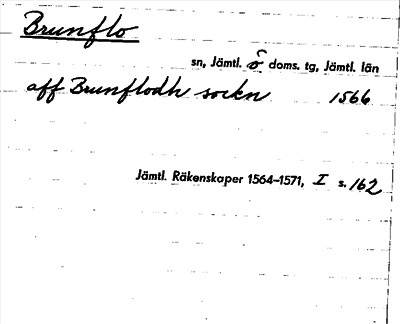 Brunflo
sn, Jämtl. ö doms. tg, Jämtl. län
aff Brunflodh sockn 1566
Jämtl. Räkenskaper 1564–1571, I s. 162